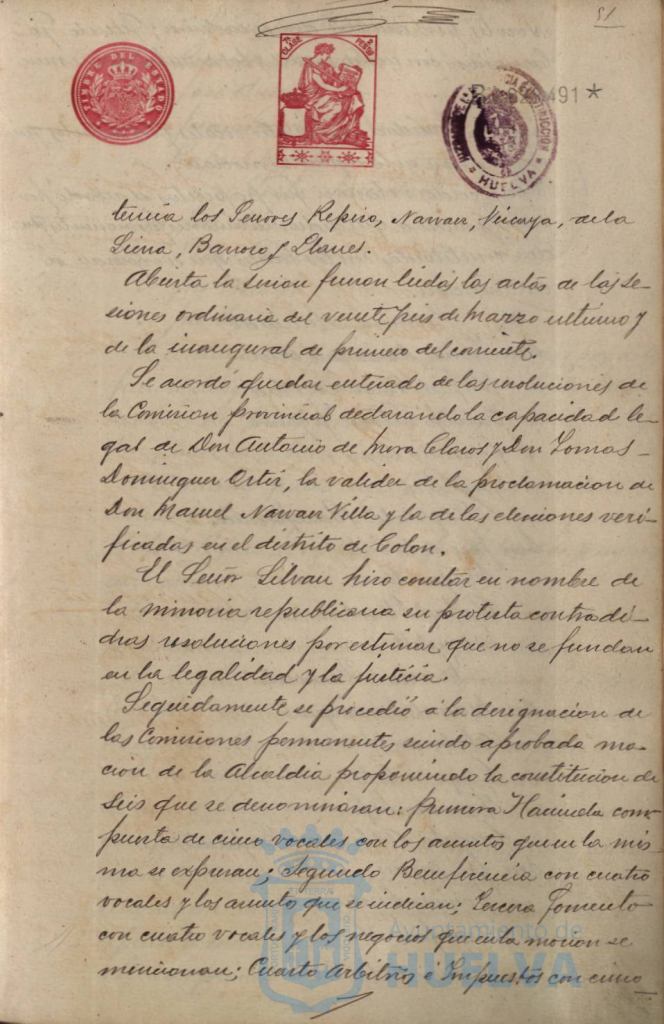 51
TIMBRE DEL ESTADO
7ª CLASE
HUELVA
491 *
tencia los Señores Repiso, Narvaez, Vizcaya, de la
Sierra, Barroso y Llanes.
Abierta la sesion fueron leidas las actas de las se-
siones ordinaria del veinte seis de Marzo ultimo y
de la inaugural de primero del corriente.
Se acordó quedar enterado de las resoluciones de
la Comision provincial declarando la capacidad le-
gal de Don Antonio de Mora Claros y Don Tomas
Dominguez Ortiz, la validez de la proclamacion de
Don Manuel Narvaez Villa y la de las elecciones veri-
ficadas en el distrito de Colon.
El Señor Silvan hizo constar en nombre de
la minoria republicana su protesta contra di-
chas resoluciones por estimar que no se fundan
en la legalidad y la justicia.
Seguidamente se procedió á la designacion de
las Comisiones permanentes, siendo aprobada mo-
cion de la Alcaldia proponiendo la constitucion de
seis que se denominaran: primera Hacienda com-
puesta de cinco vocales con los asuntos que en la mis-
ma se expresan; Segunda Beneficencia con cuatro
vocales y los asuntos que se indican; Tercera Fomento
con cuatro vocales y los negocios que en la mocion se
mencionan; Cuarta Arbitrios é Impuestos con cinco
Ayuntamiento de
HUELVA